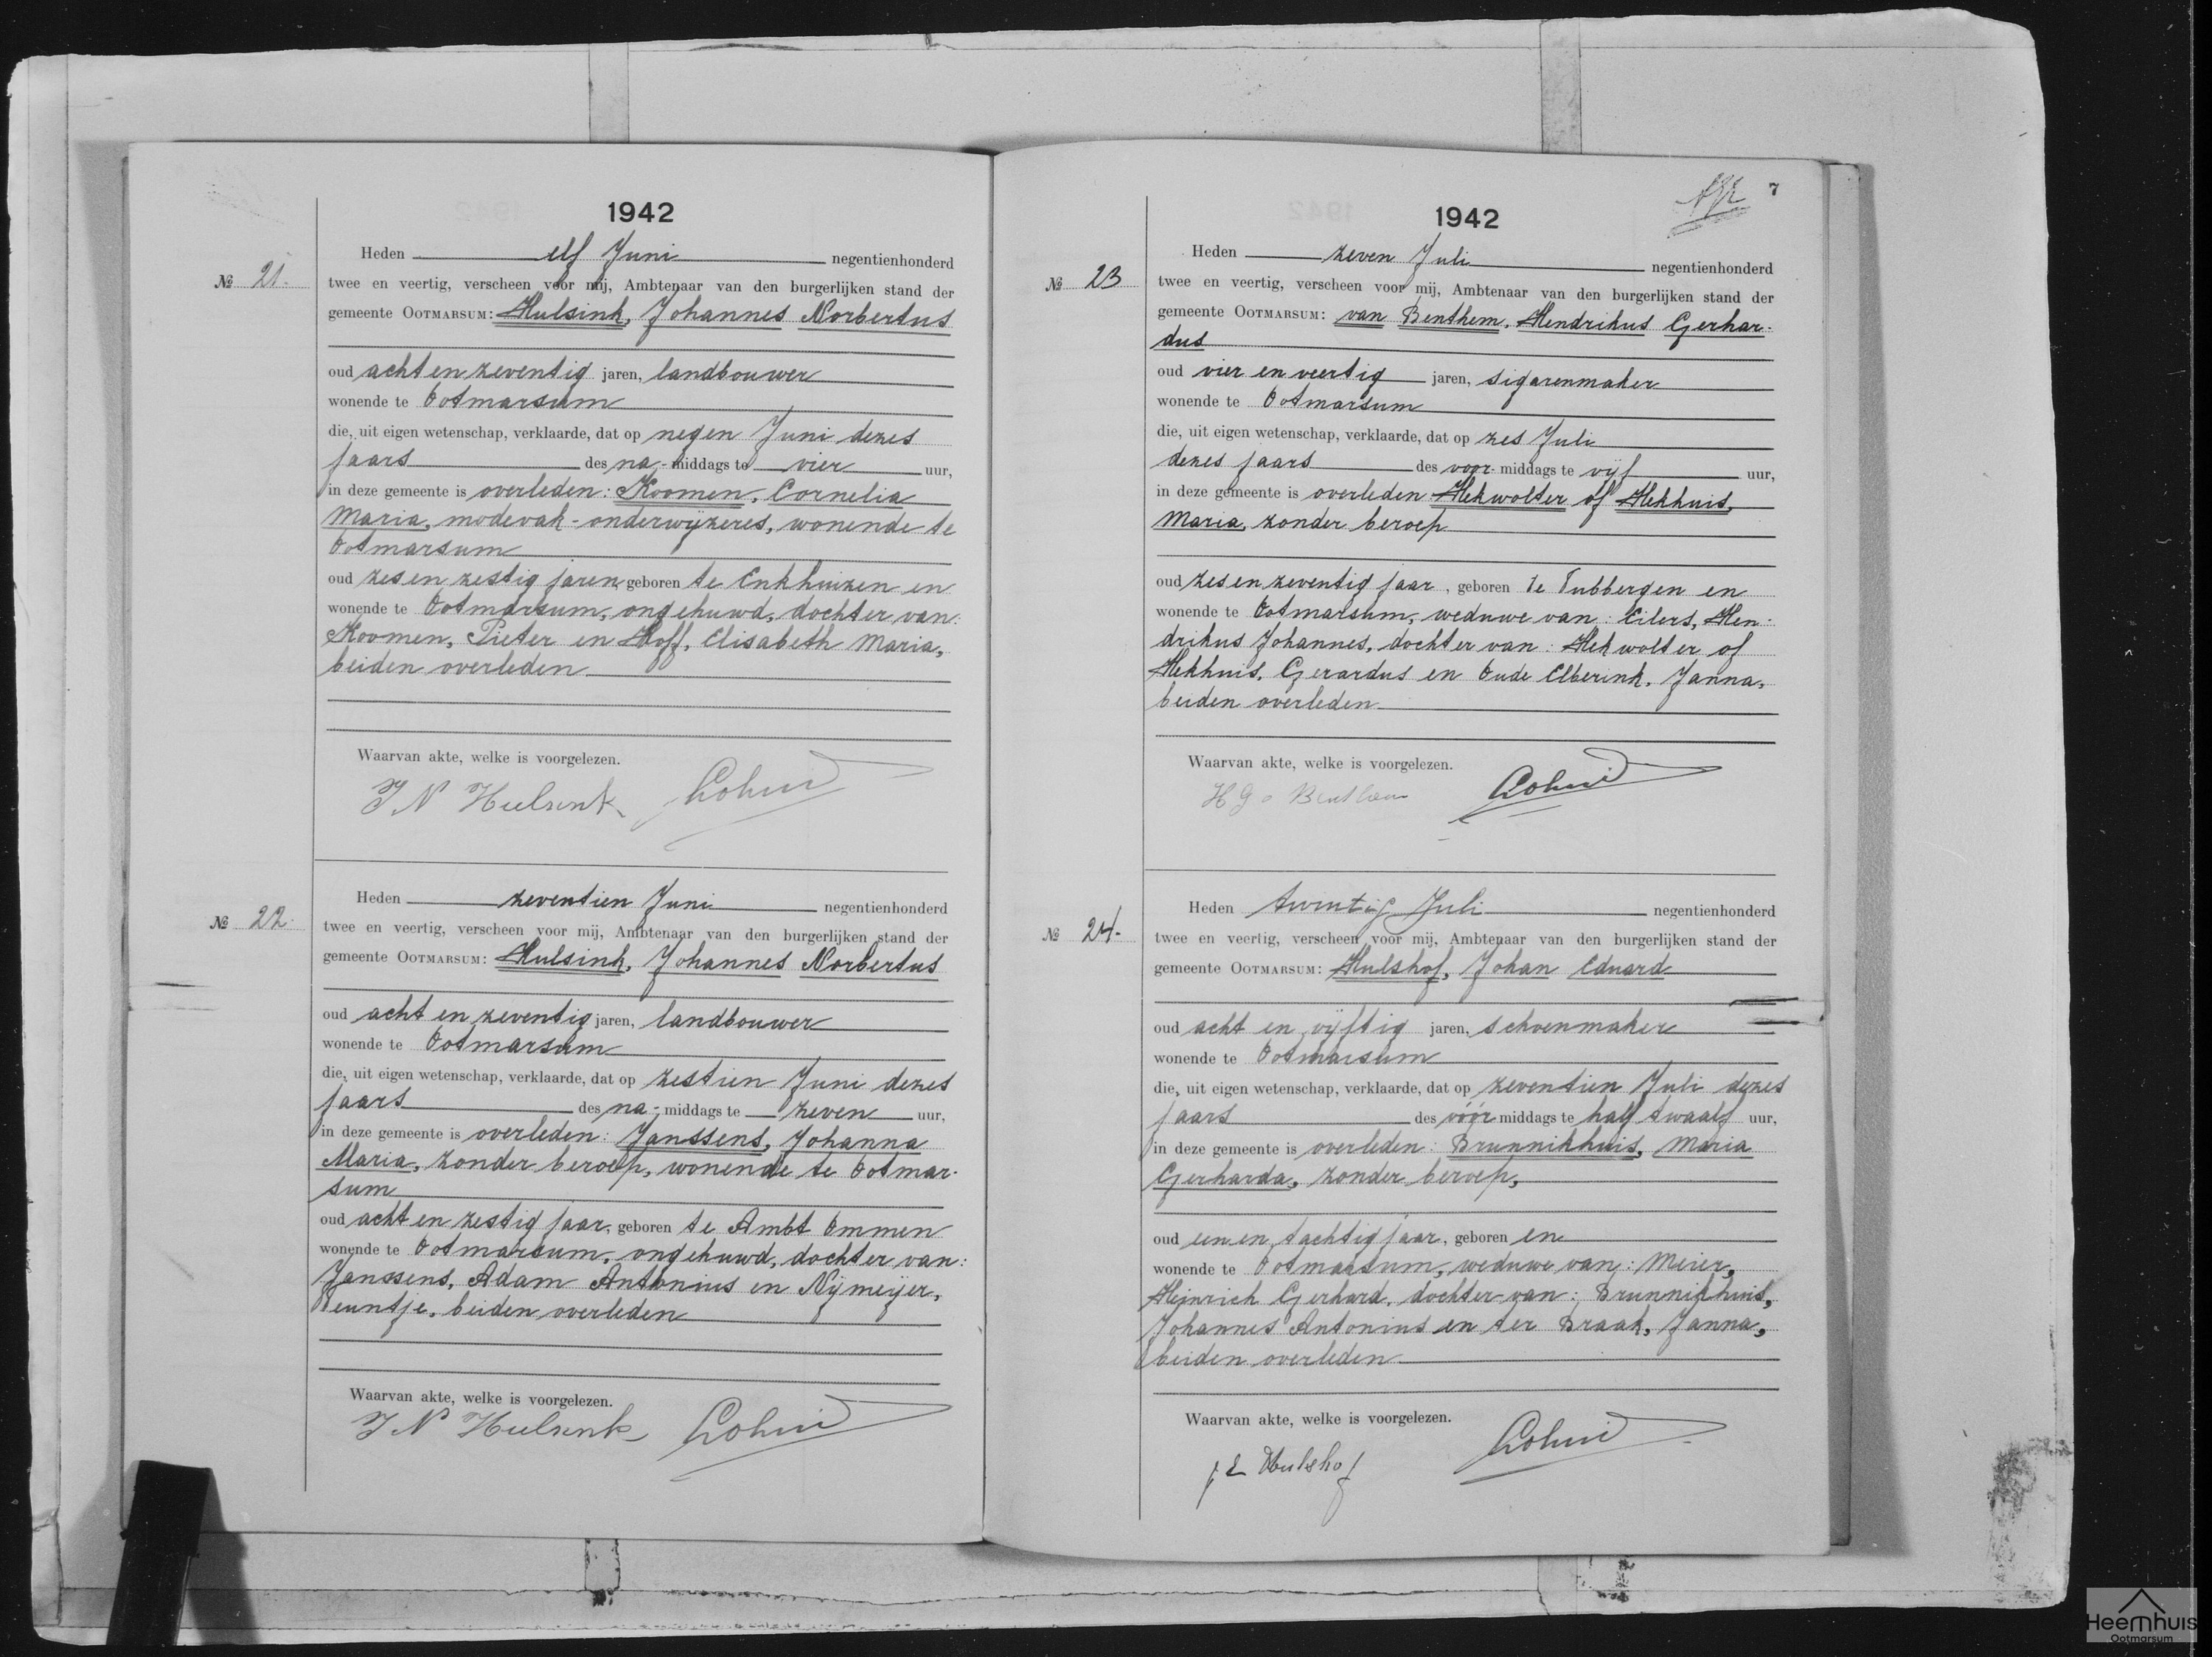 1942
Heden elf Juni negentienhonderd
№ 21.
twee en veertig, verscheen voor mij, Ambtenaar van den burgerlijken stand der
gemeente OOTMARSUM: Hulsink, Johannes Norbertus
oud acht en zeventig jaren, landbouwer
wonende te Ootmarsum
die, uit eigen wetenschap, verklaarde, dat op negen Juni dezes
jaars des na-middags te vier uur,
in deze gemeente is overleden: Koomen, Cornelia
Maria, modevak-onderwijzeres, wonende te
Ootmarsum
oud zes en zestig jaren geboren te Enkhuizen en
wonende te Ootmarsum, ongehuwd, dochter van:
Koomen, Pieter en Hoff, Elisabeth Maria,
beiden overleden
Waarvan akte, welke is voorgelezen.
J N Hulsink
Heden zeventien Juni negentienhonderd
№ 22.
twee en veertig, verscheen voor mij, Ambtenaar van den burgerlijken stand der
gemeente OOTMARSUM: Hulsink, Johannes Norbertus
oud acht en zeventig jaren, landbouwer
wonende te Ootmarsum
die, uit eigen wetenschap, verklaarde, dat op zestien Juni dezes
jaars des na-middags te zeven uur,
in deze gemeente is overleden: Janssens, Johanna
Maria, zonder beroep, wonende te Ootmar-
sum
oud acht en zestig jaar, geboren te Ambt Ommen
wonende te Ootmarsum, ongehuwd, dochter van:
Janssens, Adam Antonius en Nijmeijer,
Teuntje, beiden overleden
Waarvan akte, welke is voorgelezen.
J N Hulsink
7
1942
Heden zeven Juli negentienhonderd
№ 23
twee en veertig, verscheen voor mij, Ambtenaar van den burgerlijken stand der
gemeente OOTMARSUM: van Benthem, Hendrikus Gerhar-
dus
oud vier en veertig jaren, sigarenmaker
wonende te Ootmarsum
die, uit eigen wetenschap, verklaarde, dat op zes Juli
dezes jaars des voor-middags te vijf uur,
in deze gemeente is overleden: Hekwolter of Hekhuis,
Maria, zonder beroep
oud zes en zeventig jaar, geboren te Tubbergen en
wonende te Ootmarsum, weduwe van: Eilers, Hen-
drikus Johannes, dochter van: Hekwolter of
Hekhuis, Gerardus en Oude Elberink, Janna,
beiden overleden
Waarvan akte, welke is voorgelezen.
H G v Benthem
Heden twintig Juli negentienhonderd
№ 24.
twee en veertig, verscheen voor mij, Ambtenaar van den burgerlijken stand der
gemeente OOTMARSUM: Hulshof, Johan Eduard
oud acht en vijftig jaren, schoenmaker
wonende te Ootmarsum
die, uit eigen wetenschap, verklaarde, dat op zeventien Juli dezes
jaars des vóór middags te half twaalf uur,
in deze gemeente is overleden: Brunnikhuis, Maria
Gerharda, zonder beroep,
oud een en tachtig jaar, geboren en
wonende te Ootmarsum, weduwe van: Meier,
Heinrich Gerhard, dochter van: Brunnikhuis,
Johannes Antonius en ter Braak, Janna,
beiden overleden
Waarvan akte, welke is voorgelezen.
J E Hulshof
Heemhuis
Ootmarsum